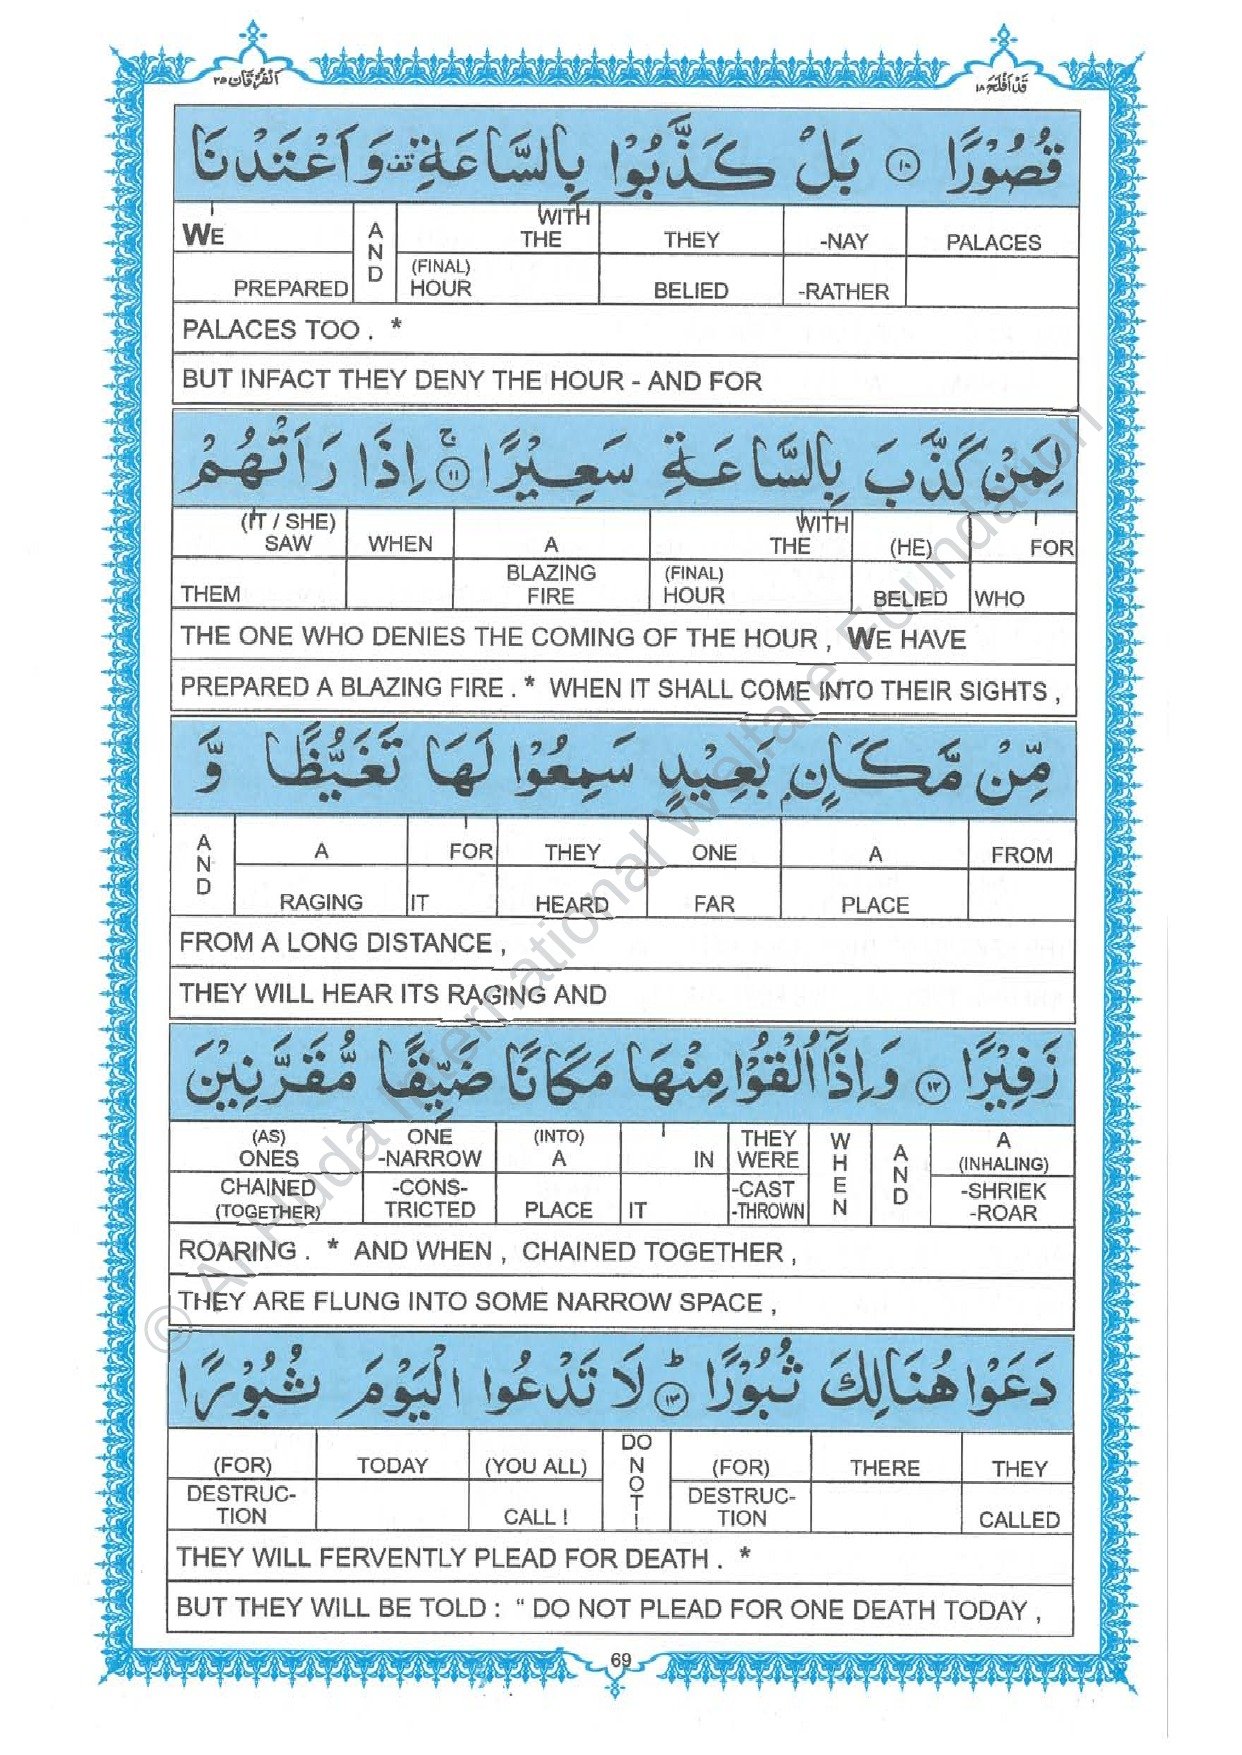 قَدْ اَفْلَحَ ١٨
اَلْفُرْقَان ٢٥
قُصُوْرًا ١٠ بَلْ كَذَّبُوْا بِالسَّاعَةِ وَاَعْتَدْنَا
PALACES | -NAY -RATHER | THEY BELIED | WITH THE (FINAL) HOUR | AND | WE PREPARED
PALACES TOO . *
BUT INFACT THEY DENY THE HOUR - AND FOR
لِمَنْ كَذَّبَ بِالسَّاعَةِ سَعِيْرًا ١١ اِذَا رَاَتْهُمْ
FOR WHO | (HE) BELIED | WITH THE (FINAL) HOUR | A BLAZING FIRE | WHEN | (IT / SHE) SAW THEM
THE ONE WHO DENIES THE COMING OF THE HOUR , WE HAVE
PREPARED A BLAZING FIRE . * WHEN IT SHALL COME INTO THEIR SIGHTS ,
مِّنْ مَّكَانٍۭ بَعِيْدٍ سَمِعُوْا لَهَا تَغَيُّظًا وَّ
FROM | A PLACE | ONE FAR | THEY HEARD | FOR IT | A RAGING | AND
FROM A LONG DISTANCE ,
THEY WILL HEAR ITS RAGING AND
زَفِيْرًا ١٢ وَاِذَآ اُلْقُوْا مِنْهَا مَكَانًا ضَيِّقًا مُّقَرَّنِيْنَ
A (INHALING) -SHRIEK -ROAR | AND | WHEN | THEY WERE -CAST -THROWN | IN IT | (INTO) A PLACE | ONE -NARROW -CONS-TRICTED | (AS) ONES CHAINED (TOGETHER)
ROARING . * AND WHEN , CHAINED TOGETHER ,
THEY ARE FLUNG INTO SOME NARROW SPACE ,
دَعَوْا هُنَالِكَ ثُبُوْرًا ١٣ لَا تَدْعُوا الْيَوْمَ ثُبُوْرًا
THEY CALLED | THERE | (FOR) DESTRUC-TION | DO NOT ! | (YOU ALL) CALL ! | TODAY | (FOR) DESTRUC-TION
THEY WILL FERVENTLY PLEAD FOR DEATH . *
BUT THEY WILL BE TOLD : “ DO NOT PLEAD FOR ONE DEATH TODAY ,
69
© Al Huda International Welfare Foundation